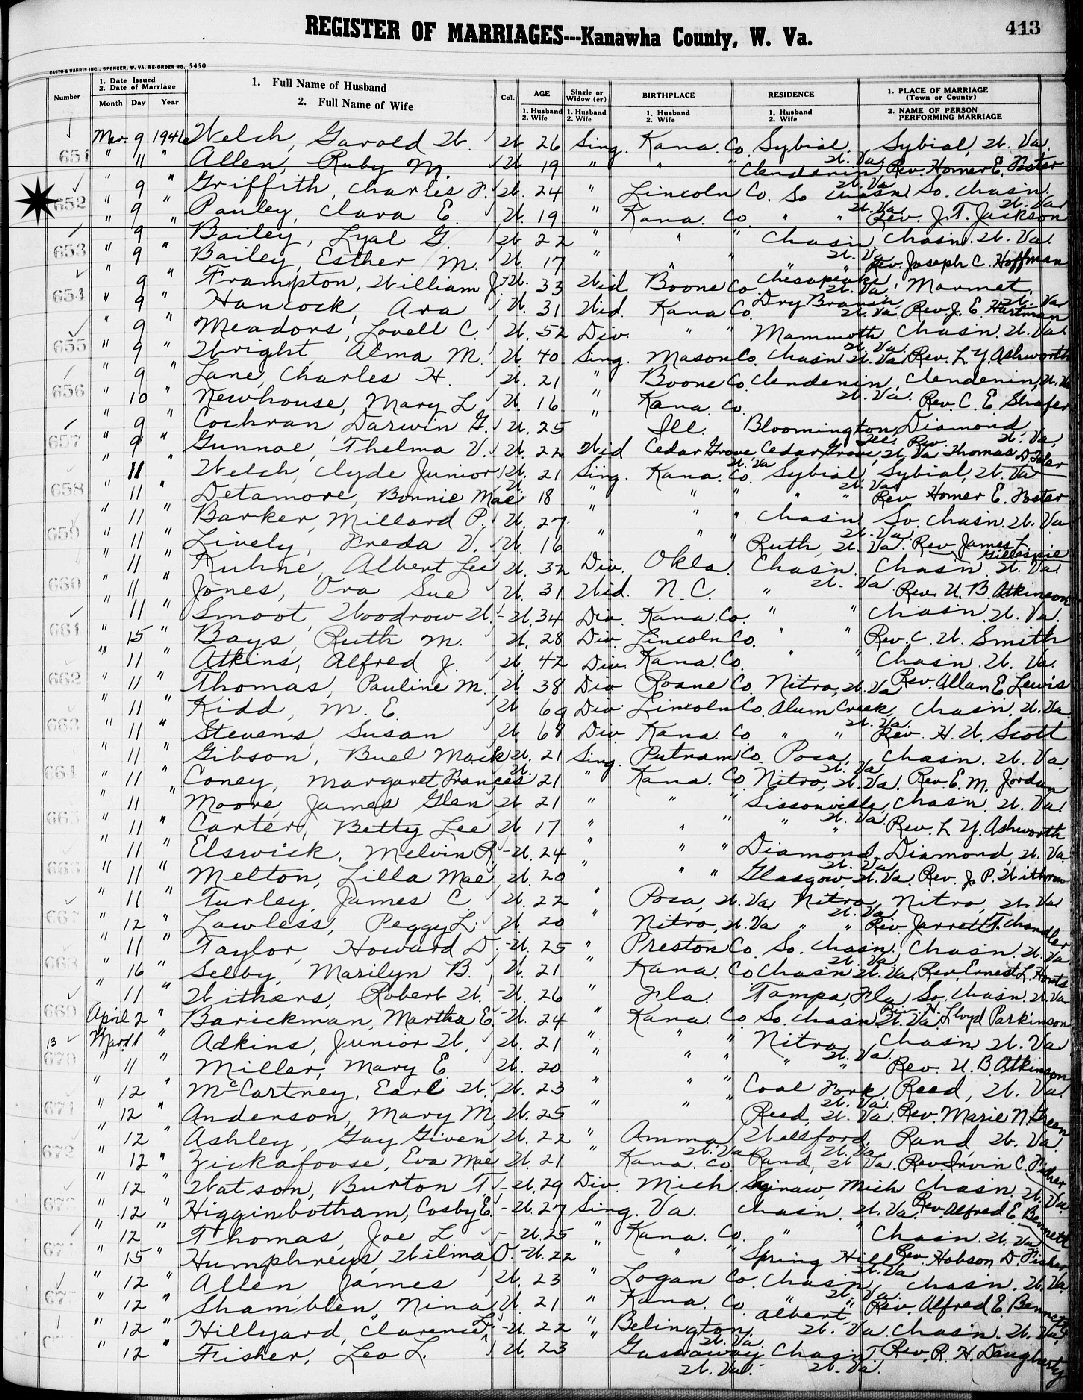 REGISTER OF MARRIAGES---Kanawha County, W. Va.
413
Number
1. Date Issued
2. Date of Marriage
Month Day Year
1. Full Name of Husband
2. Full Name of Wife
Col.
AGE
1. Husband
2. Wife
Single or Widow (er)
1. Husband
2. Wife
BIRTHPLACE
1. Husband
2. Wife
RESIDENCE
1. Husband
2. Wife
1. PLACE OF MARRIAGE
(Town or County)
2. NAME OF PERSON
PERFORMING MARRIAGE
651 Mar. 9 1946 Welch, Garold W. W. 26 Sing. Kana. Co. Sybial, W. Va. Sybial, W. Va.
" 11 " Allen, Ruby M. W. 19 " " " Clendenin Rev. Homer E. Foster
652 " 9 " Griffith, Charles F. W. 24 " Lincoln Co. So. Chasn. W. Va. So. Chasn. W. Va.
" 9 " Pauley, Clara E. W. 19 " Kana. Co. " " Rev. J. T. Jackson
653 " 9 " Bailey, Lyal G. W. 22 " " " Chasn. W. Va. Chasn. W. Va.
" 9 " Bailey, Esther M. W. 17 " " " " Rev. Joseph C. Hoffman
654 " 9 " Frampton, William J. W. 33 Wid. Boone Co. Chesapeake, W. Va. Marmet, W. Va.
" 9 " Hancock, Ara W. 31 Wid. Kana. Co. Dry Branch W. Va. Rev. J. E. Hartman
655 " 9 " Meadors, Lovell C. W. 52 Div. " " Mammoth W. Va. Chasn. W. Va.
" 9 " Wright Alma M. W. 40 Sing. Mason Co. Chasn. W. Va. Rev. L. Y. Ashworth
656 " 9 " Lane, Charles H. W. 21 " Boone Co. Clendenin, W. Va. Clendenin, W. Va.
" 10 " Newhouse, Mary L. W. 16 " Kana. Co. Rev. C. E. Shafer
657 " 9 " Cochran Darwin G. W. 25 " Ill. Bloomington, Ill. Diamond, W. Va.
" 9 " Gunnoe, Thelma V. W. 22 Wid. Cedar Grove, W. Va. Cedar Grove, W. Va. Rev. Thomas D.
658 " 11 " Welch, Clyde Junior W. 21 Sing. Kana. Co. Sybial, W. Va. Sybial, W. Va.
" 11 " Detamore, Bonnie Mae W. 18 " " " " " Rev. Homer E. Foster
659 " 11 " Barker, Millard P. W. 27 " " " Chasn. W. Va. So. Chasn. W. Va.
" 11 " Lively, Freda V. W. 16 " " " Ruth, W. Va. Rev. James F. Gillespie
660 " 11 " Kuhne, Albert Lee W. 32 Div. Okla. Chasn. W. Va. Chasn. W. Va.
" 11 " Jones, Ora Sue W. 31 Wid. N. C. " Rev. U. B. Atkinson
661 " 11 " Smoot, Woodrow W. W. 34 Div. Kana. Co. " " Chasn. W. Va.
" 15 " Bays, Ruth M. W. 28 Div. Lincoln Co. " " Rev. C. W. Smith
662 " 11 " Atkins, Alfred J. W. 42 Div. Kana. Co. " " Chasn. W. Va.
" 11 " Thomas, Pauline M. W. 38 Div. Roane Co. Nitro, W. Va. Rev. Allan E. Lewis
663 " 11 " Kidd, M. E. W. 69 Div. Lincoln Co. Alum Creek, W. Va. Chasn. W. Va.
" 11 " Stevens, Susan W. 68 Div. Kana. Co. " " Rev. H. W. Scott
664 " 11 " Gibson, Buel Mack W. 21 Sing. Putnam Co. Poca, W. Va. Chasn. W. Va.
" 11 " Coney, Margaret Frances W. 21 " Kana. Co. Nitro, W. Va. Rev. E. M. Jordan
665 " 11 " Moore James Glen W. 21 " " " Sissonville, W. Va. Chasn. W. Va.
" 11 " Carter, Betty Lee W. 17 " " " " " Rev. L. Y. Ashworth
666 " 11 " Elswick, Melvin R. W. 24 " " " Diamond, W. Va. Diamond, W. Va.
" 11 " Melton, Lilla Mae W. 20 " " " Glasgow, W. Va. Rev. J. P. Withrow
667 " 11 " Turley, James C. W. 22 " Poca, W. Va. Nitro, W. Va. Nitro, W. Va.
" 12 " Lawless, Peggy L. W. 20 " Nitro, W. Va. " " Rev. Jarrett T. Chandler
668 " 11 " Taylor, Howard D. W. 25 " Preston Co. So. Chasn. W. Va. Chasn. W. Va.
" 16 " Selby, Marilyn B. W. 21 " Kana. Co. Chasn. W. Va. Rev. Ernest L. Houts
669 " 11 " Withers, Robert W. W. 26 " Fla. Tampa, Fla. So. Chasn. W. Va.
April 2 " Barickman, Martha E. W. 24 " Kana. Co. So. Chasn. W. Va. Rev. H. Lloyd Parkinson
670 Mar. 11 Adkins, Junior W. W. 21 " " " Nitro, W. Va. Chasn. W. Va.
" 11 " Miller, Mary E. W. 20 " " " " " Rev. U. B. Atkinson
671 " 12 " McCartney, Earl W. W. 23 " " " Coal Fork, W. Va. Reed, W. Va.
" 12 " Anderson, Mary M. W. 25 " " " Reed, W. Va. Rev. Marie N. Green
672 " 12 " Ashley, Guy Given W. 22 " Amma, W. Va. Wallsford, W. Va. Rand, W. Va.
" 12 " Zickafoose, Eva Mae W. 21 " Kana. Co. Rand, W. Va. Rev. Irvin C.
673 " 12 " Watson, Burton T. W. 29 Div. Mich. Saginaw, Mich. Chasn. W. Va.
" 12 " Higginbotham, Cosby E. W. 27 Sing. Va. Chasn. W. Va. Rev. Alfred E. Bennett
674 " 12 " Thomas, Joe L. W. 25 " Kana. Co. " Chasn. W. Va.
" 15 " Humphreys, Wilma O. W. 22 " " " Spring Hill W. Va. Rev. Hobson D. Fisher
675 " 12 " Allen James W. 23 " Logan Co. Chasn. W. Va. Chasn. W. Va.
" 12 " Shamblen, Nina W. 21 " Kana. Co. " " Rev. Alfred E. Bennett
" 12 " Hillyard, Clarence T. W. 22 " Belington, W. Va. Albert, W. Va. Chasn. W. Va.
" 12 " Fisher, Leo L. W. 23 " Gassaway, W. Va. Chasn. W. Va. Rev. R. H. Daugherty